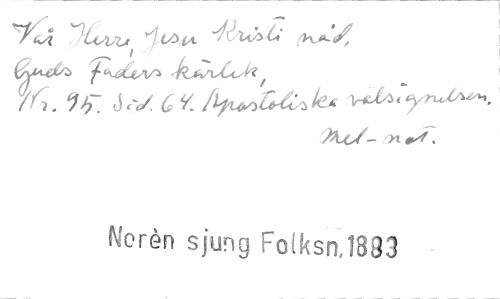 Vår Herre, Jesu Kristi nåd,
Guds Faders kärlek,
Nr. 95. Sid. 64. Apostoliska välsignelsen.
Mel-not.
Norèn sjung Folksn, 1883